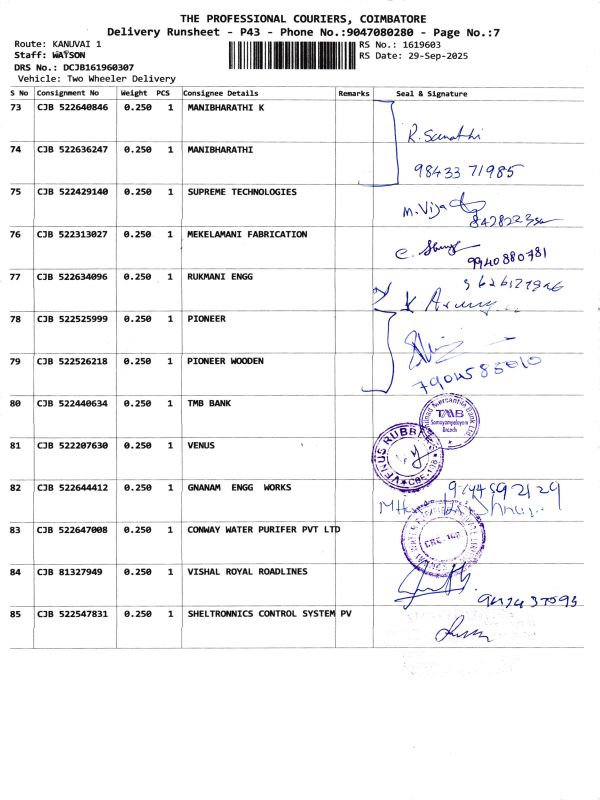 THE PROFESSIONAL COURIERS, COIMBATORE
Delivery Runsheet - P43 - Phone No.:9047080280 - Page No.:7
Route: KANUVAI 1
RS No.: 1619603
Staff: WATSON
RS Date: 29-Sep-2025
DRS No.: DCJB161960307
Vehicle: Two Wheeler Delivery
S No Consignment No Weight PCS Consignee Details Remarks Seal & Signature
73 CJB 522640846 0.250 1 MANIBHARATHI K
74 CJB 522636247 0.250 1 MANIBHARATHI
98433 71985
75 CJB 522429140 0.250 1 SUPREME TECHNOLOGIES
M. Vija
76 CJB 522313027 0.250 1 MEKELAMANI FABRICATION
9940880781
77 CJB 522634096 0.250 1 RUKMANI ENGG
78 CJB 522525999 0.250 1 PIONEER
79 CJB 522526218 0.250 1 PIONEER WOODEN
80 CJB 522440634 0.250 1 TMB BANK
TMB
Branch
81 CJB 522207630 0.250 1 VENUS
VENUS RUBBERS
82 CJB 522644412 0.250 1 GNANAM ENGG WORKS
83 CJB 522647008 0.250 1 CONWAY WATER PURIFER PVT LTD
84 CJB 81327949 0.250 1 VISHAL ROYAL ROADLINES
85 CJB 522547831 0.250 1 SHELTRONNICS CONTROL SYSTEM PV